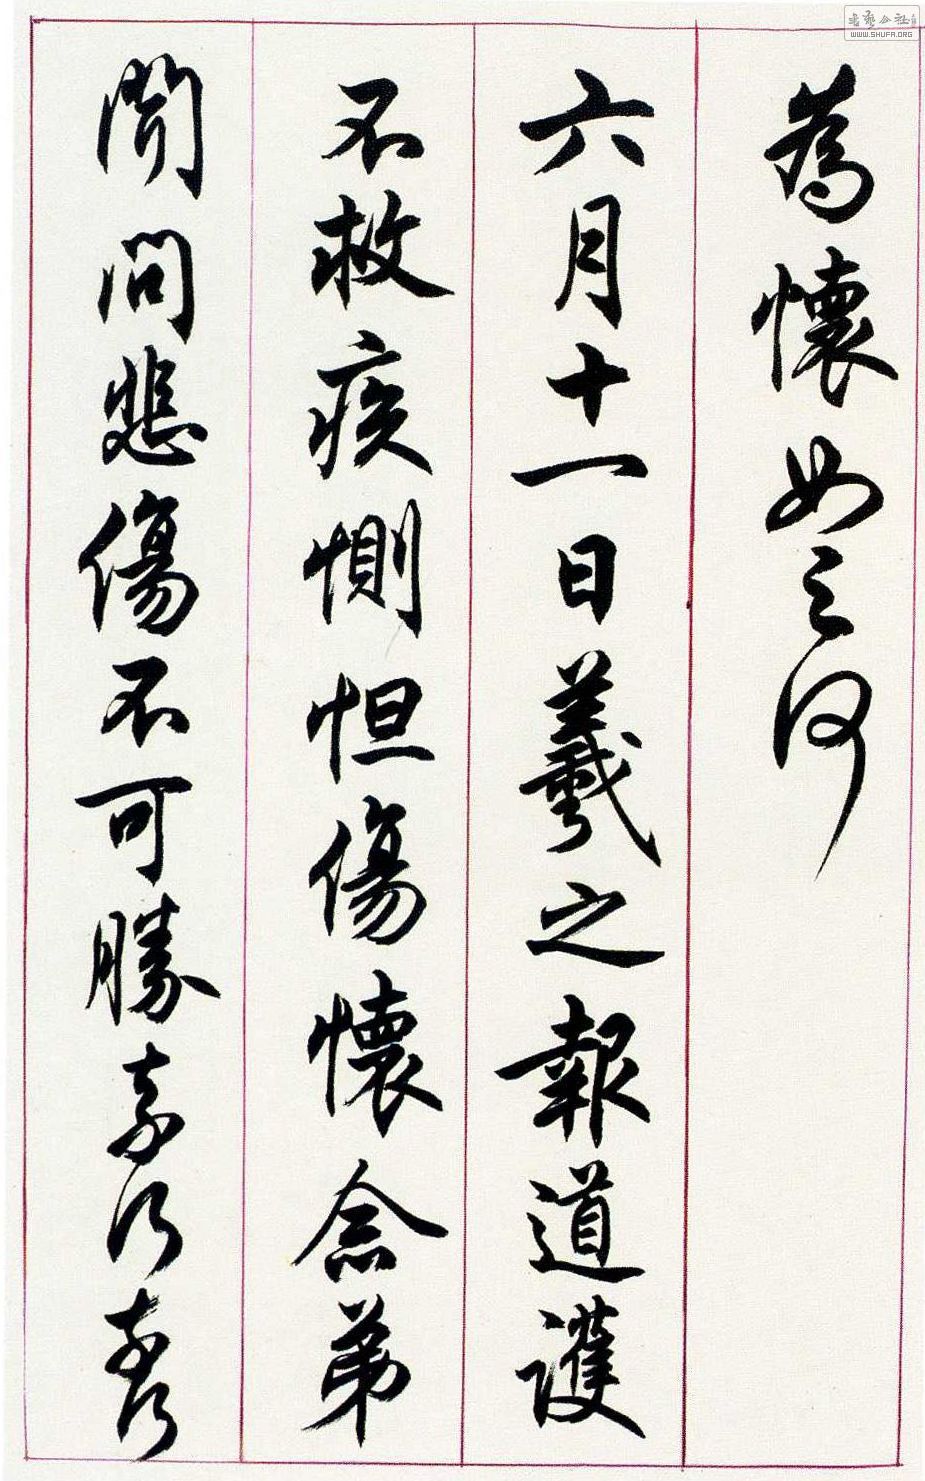 為懷如之何
六月十一日羲之報道護
不救疾惻怛傷懷念弟
聞問悲傷不可勝奈何奈何
WWW.SHUFA.ORG